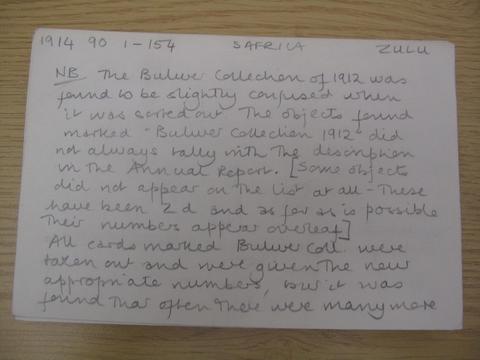 1914 90 1-154 S AFRICA ZULU
NB The Bulwer Collection of 1912 was
found to be slightly confused when
it was sorted out. The objects found
marked "Bulwer Collection 1912" did
not always tally with the description
in the Annual Report. [Some objects
did not appear on the list at all - These
have been Zd and as far as is possible
their numbers appear overleaf]
All cards marked Bulwer Coll. were
taken out and were given the new
appropriate numbers, but it was
found that often there were many more